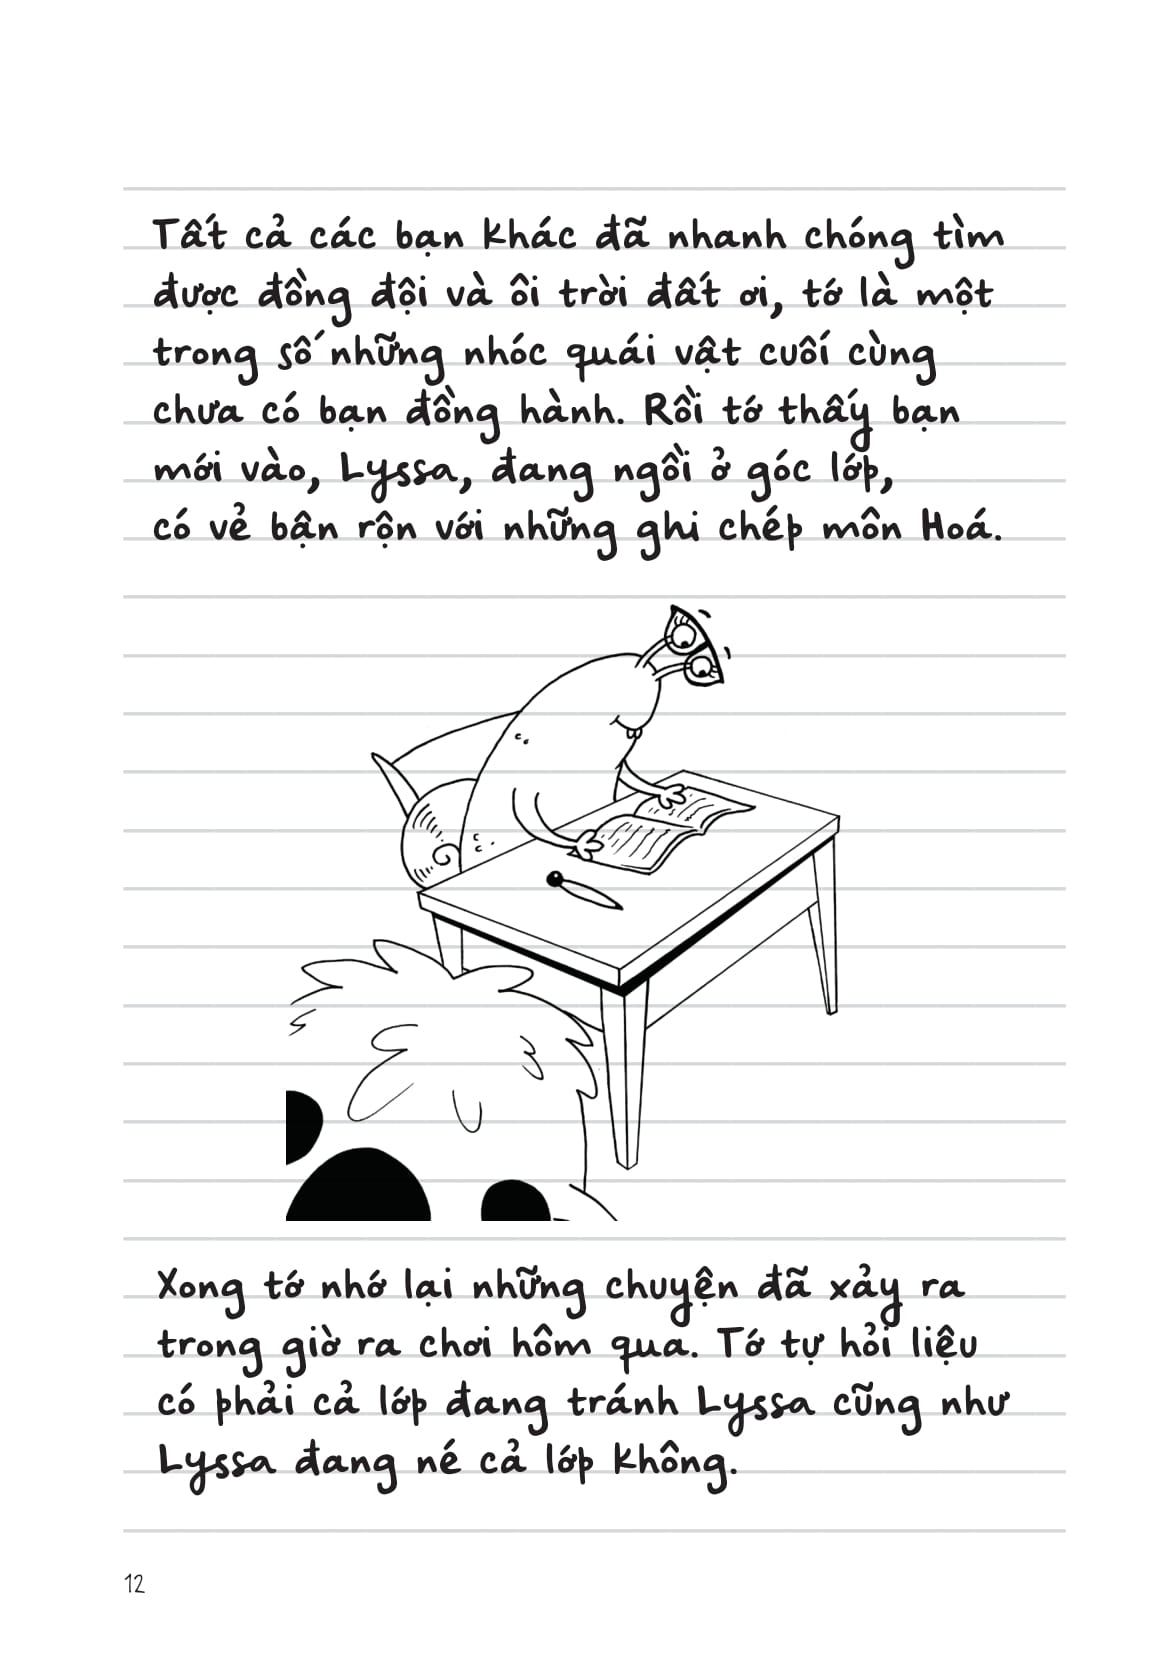 Tất cả các bạn khác đã nhanh chóng tìm
được đồng đội và ôi trời đất ơi, tớ là một
trong số những nhóc quái vật cuối cùng
chưa có bạn đồng hành. Rồi tớ thấy bạn
mới vào, Lyssa, đang ngồi ở góc lớp,
có vẻ bận rộn với những ghi chép môn Hoá.
Xong tớ nhớ lại những chuyện đã xảy ra
trong giờ ra chơi hôm qua. Tớ tự hỏi liệu
có phải cả lớp đang tránh Lyssa cũng như
Lyssa đang né cả lớp không.
12